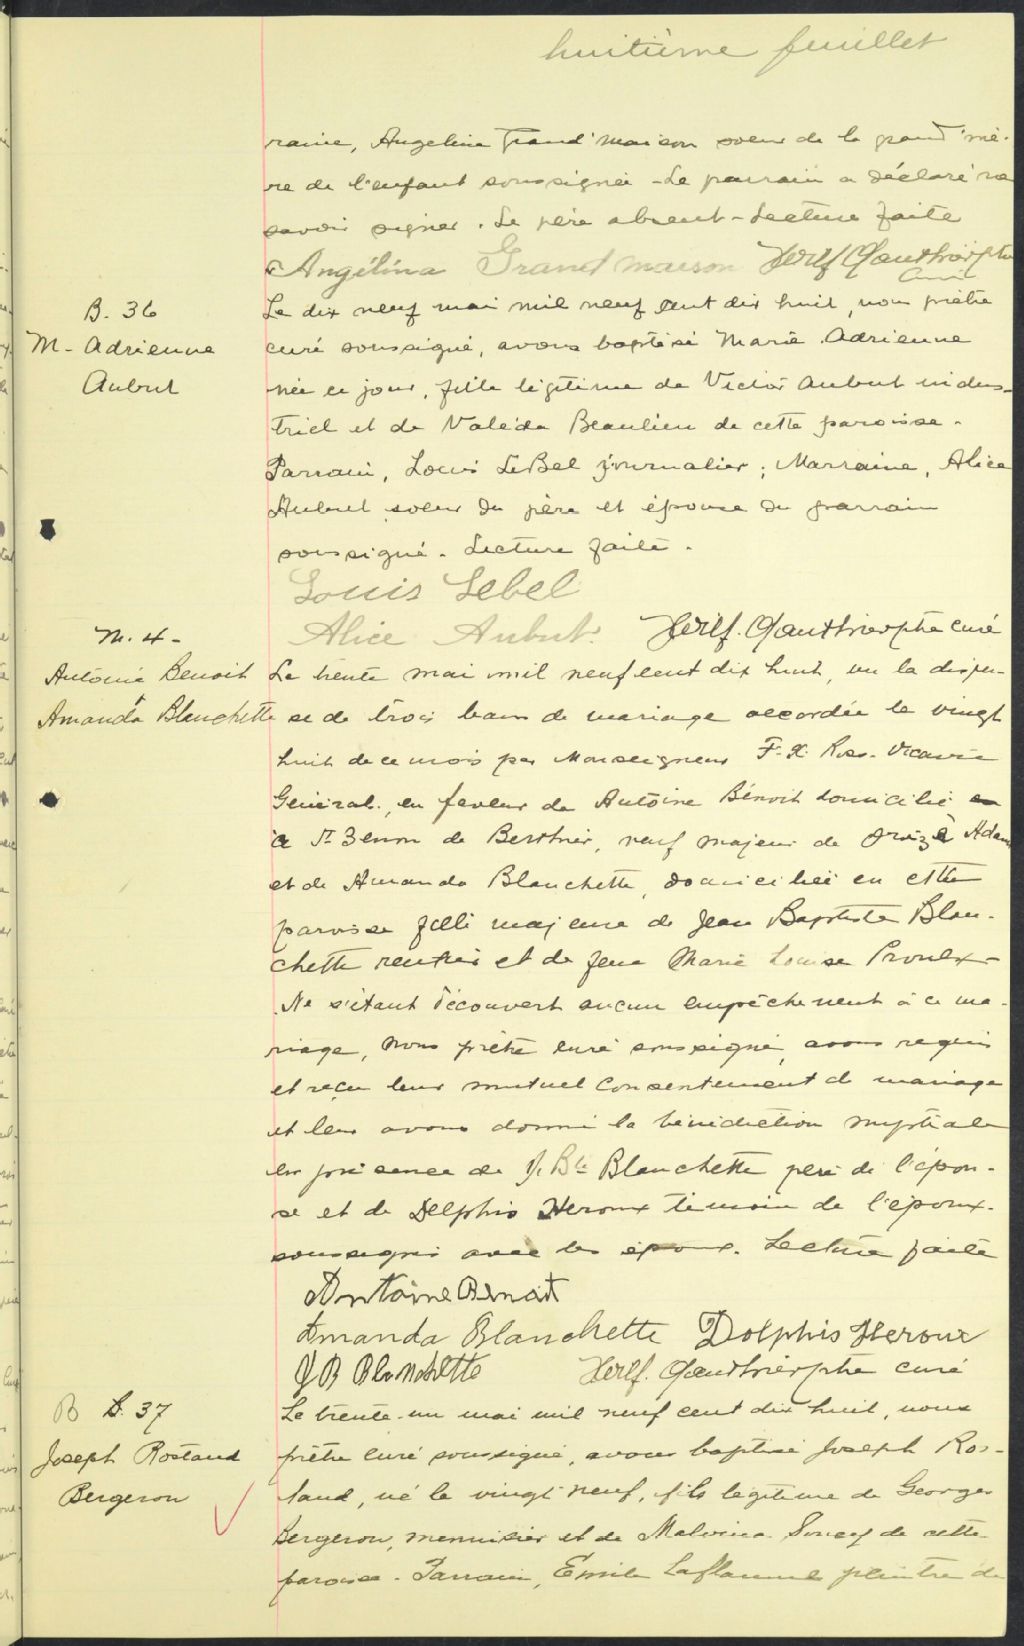 huitième feuillet
raine, Angelina Grand'maison soeur de la grand'mè-
re de l'enfant soussignée - Le parrain a déclaré ne
savoir signer. Le père absent - Lecture faite
Angélina Grand maison Gauthier ptre
curé
B. 36
M- Adrienne
Aubut
Le dix neuf mai mil neuf cent dix huit, nous prêtre
curé soussigné, avons baptisé Marie Adrienne
née ce jour, fille légitime de Victor Aubut indus-
triel et de Valéda Beaulieu de cette paroisse.
Parrain, Louis LeBel journalier; Marraine, Alice
Aubut soeur du père et épouse du parrain
soussigné. Lecture faite.
Louis Lebel
Alice Aubut. Gauthier ptre curé
M. 4-
Antoine Benoit
&
Amanda Blanchette
Le trente mai mil neuf cent dix huit, vu la dispen-
se de trois bans de mariage accordée le vingt
huit de ce mois par Monseigneur F. X. Ross. Vicaire
Général, en faveur de Antoine Bénoit domicilié
à St Zenon de Berthier, veuf majeur de Adam
et de Amanda Blanchette, domiciliée en cette
paroisse fille majeure de Jean Baptiste Blan-
chette rentier et de feue Marie Louise Proulx-
Ne s'étant découvert aucun empêchement à ce ma-
riage, Nous prêtre curé soussigné, avons requis
et reçu leur mutuel consentement de mariage
et leur avons donné la bénédiction nuptiale
en présence de J. Bte Blanchette père de l'épou-
se et de Delphis Heroux témoin de l'époux.
soussignés avec les époux. Lecture faite
Antoine Benoit
Amanda Blanchette Dolphis Heroux
J B Blanchette Gauthier ptre curé
B 37
Joseph Rostand
Bergeron
Le trente-un mai mil neuf cent dix huit, nous
prêtre curé soussigné, avons baptisé Joseph Ros-
tand, né le vingt neuf, fils légitime de Georges
Bergeron, menuisier et de Malvina Soucy de cette
paroisse. Parrain, Emile Laflamme peintre de